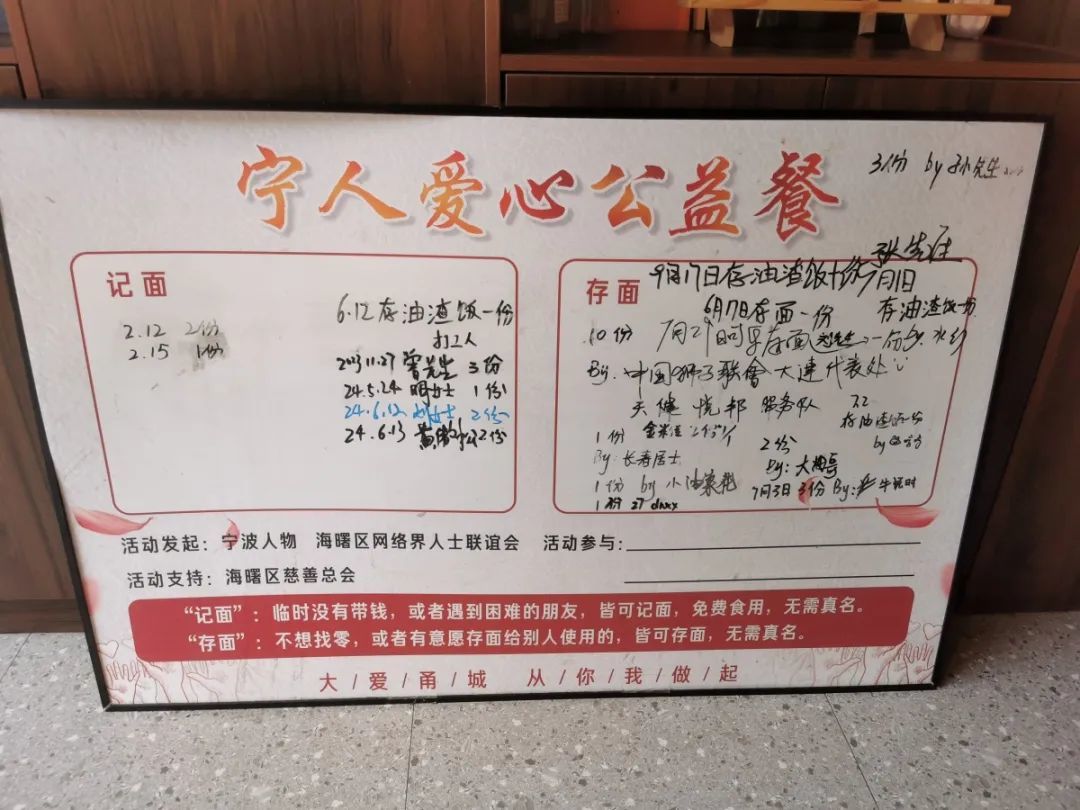 宁人爱心公益餐
3份 by 孙先生
记面
2.12 2份
2.15 1份
6.12存油渣饭一份
打工人
2023.11.27 曾先生 3份
24.5.24 明女士 1份
24.6.12 刘女士 2份
24.6.13 黄 2份
存面
张先生
9月17日存油渣饭十份
7月1日
6月7日存面一份
存油渣饭一份
10份
7月2 存面 一份
By: 中国狮子联會大連代表处
天健悦邦 服务队
7.2
存油渣饭一份
by
1份
By: 长寿居士
2份
By: 大
1份 by 小油菜花
7月3日 3份 By:
1份 27 dnxx
活动发起：宁波人物 海曙区网络界人士联谊会 活动参与：
活动支持：海曙区慈善总会
“记面”：临时没有带钱，或者遇到困难的朋友，皆可记面，免费食用，无需真名。
“存面”：不想找零，或者有意愿存面给别人使用的，皆可存面，无需真名。
大/爱/甬/城 从/你/我/做/起